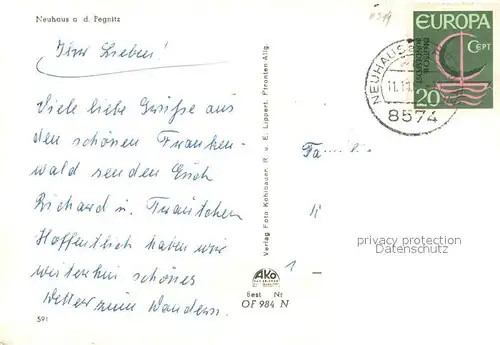 Neuhaus a. d. Pegnitz
Ihr Lieben!
Viele liebe Grüße aus
den schönen Franken-
wald senden Euch
Richard u. Trautchen
Hoffentlich haben wir
weiterhin schönes
Wetter zum Wandern.
591
Verlag Foto Kohlbauer, R. u. E. Lippert, Pfronten-Allg.
AKO
Best Nr
OF 984 N
EUROPA
CEPT
DEUTSCHE
BUNDESPOST
20
NEUHAUS
11.10.
8574
Fa
1
privacy protection
Datenschutz